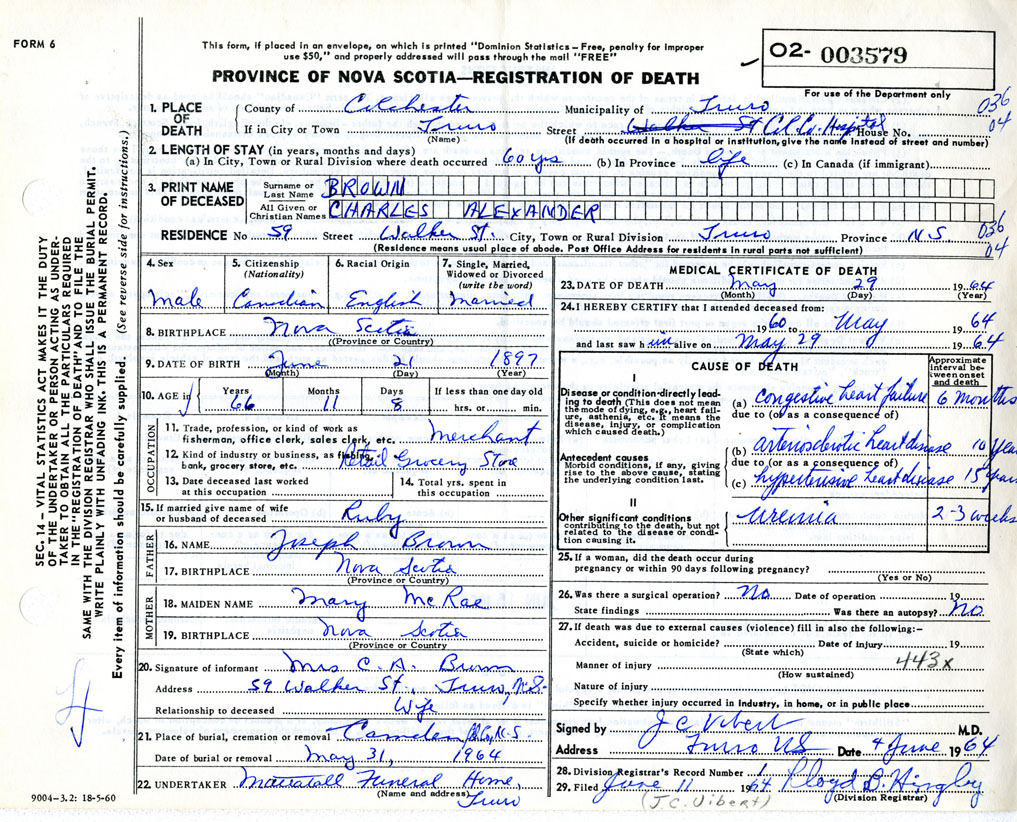 FORM 6
This form, if placed in an envelope, on which is printed "Dominion Statistics – Free, penalty for improper
use $50," and properly addressed will pass through the mail "FREE"
PROVINCE OF NOVA SCOTIA—REGISTRATION OF DEATH
O2- 003579
For use of the Department only
036
04
1. PLACE OF DEATH
County of Colchester Municipality of Truro
If in City or Town Truro Street Walker St Col. Co. Hospital House No.
(Name) (If death occurred in a hospital or institution, give the name instead of street and number)
2. LENGTH OF STAY (in years, months and days)
(a) In City, Town or Rural Division where death occurred 60 yrs (b) In Province life (c) In Canada (if immigrant)
3. PRINT NAME OF DECEASED
Surname or Last Name BROWN
All Given or Christian Names CHARLES ALEXANDER
RESIDENCE No 59 Street Walker St. City, Town or Rural Division Truro Province N S
036
04
(Residence means usual place of abode. Post Office Address for residents in rural parts not sufficient)
4. Sex
Male
5. Citizenship (Nationality)
Canadian
6. Racial Origin
English
7. Single, Married, Widowed or Divorced (write the word)
Married
8. BIRTHPLACE Nova Scotia
((Province or Country)
9. DATE OF BIRTH June 21 1897
(Month) (Day) (Year)
10. AGE in
Years 66 Months 11 Days 8 If less than one day old hrs. or min.
OCCUPATION
11. Trade, profession, or kind of work as
fisherman, office clerk, sales clerk, etc. Merchant
12. Kind of industry or business, as fishing,
bank, grocery store, etc. Retail Grocery Store
13. Date deceased last worked
at this occupation
14. Total yrs. spent in
this occupation
15. If married give name of wife
or husband of deceased Ruby
FATHER
16. NAME Joseph Brown
17. BIRTHPLACE Nova Scotia
(Province or Country)
MOTHER
18. MAIDEN NAME Mary McRae
19. BIRTHPLACE Nova Scotia
(Province or Country
20. Signature of informant Mrs C. A. Brown
Address 59 Walker St., Truro, N.S.
Relationship to deceased Wife
21. Place of burial, cremation or removal Camden, Col. Co, N.S.
Date of burial or removal May 31, 1964
22. UNDERTAKER Mattatall Funeral Home,
(Name and address) Truro
9004–3.2: 18-5-60
MEDICAL CERTIFICATE OF DEATH
23. DATE OF DEATH May 29 1964
(Month) (Day) (Year)
24. I HEREBY CERTIFY that I attended deceased from:
1960 to May 1964
and last saw him alive on May 29 1964
CAUSE OF DEATH
Approximate interval between onset and death
I
Disease or condition directly leading to death (This does not mean the mode of dying, e.g., heart failure, asthenia, etc. It means the disease, injury, or complication which caused death.)
(a) congestive heart failure 6 months
due to (or as a consequence of)
(b) arteriosclerotic heart disease 10 years
Antecedent causes
Morbid conditions, if any, giving rise to the above cause, stating the underlying condition last.
due to (or as a consequence of)
(c) hypertensive heart disease 15 years
II
Other significant conditions
contributing to the death, but not related to the disease or condition causing it.
uremia 2-3 weeks
25. If a woman, did the death occur during
pregnancy or within 90 days following pregnancy?
(Yes or No)
26. Was there a surgical operation? No. Date of operation 19
State findings Was there an autopsy? No.
27. If death was due to external causes (violence) fill in also the following:–
Accident, suicide or homicide? Date of injury 19
(State which)
443x
Manner of injury
(How sustained)
Nature of injury
Specify whether injury occurred in industry, in home, or in public place
Signed by J C Vibert M.D.
Address Truro NS Date 4 June 1964
28. Division Registrar's Record Number
29. Filed June 11 1964 Lloyd B. Hingley
(J.C. Vibert) (Division Registrar)
SEC. 14 – VITAL STATISTICS ACT MAKES IT THE DUTY
OF THE UNDERTAKER OR PERSON ACTING AS UNDER-
TAKER TO OBTAIN ALL THE PARTICULARS REQUIRED
IN THE "REGISTRATION OF DEATH" AND TO FILE THE
SAME WITH THE DIVISION REGISTRAR WHO SHALL ISSUE THE BURIAL PERMIT.
WRITE PLAINLY WITH UNFADING INK. THIS IS A PERMANENT RECORD.
Every item of information should be carefully supplied. (See reverse side for instructions.)